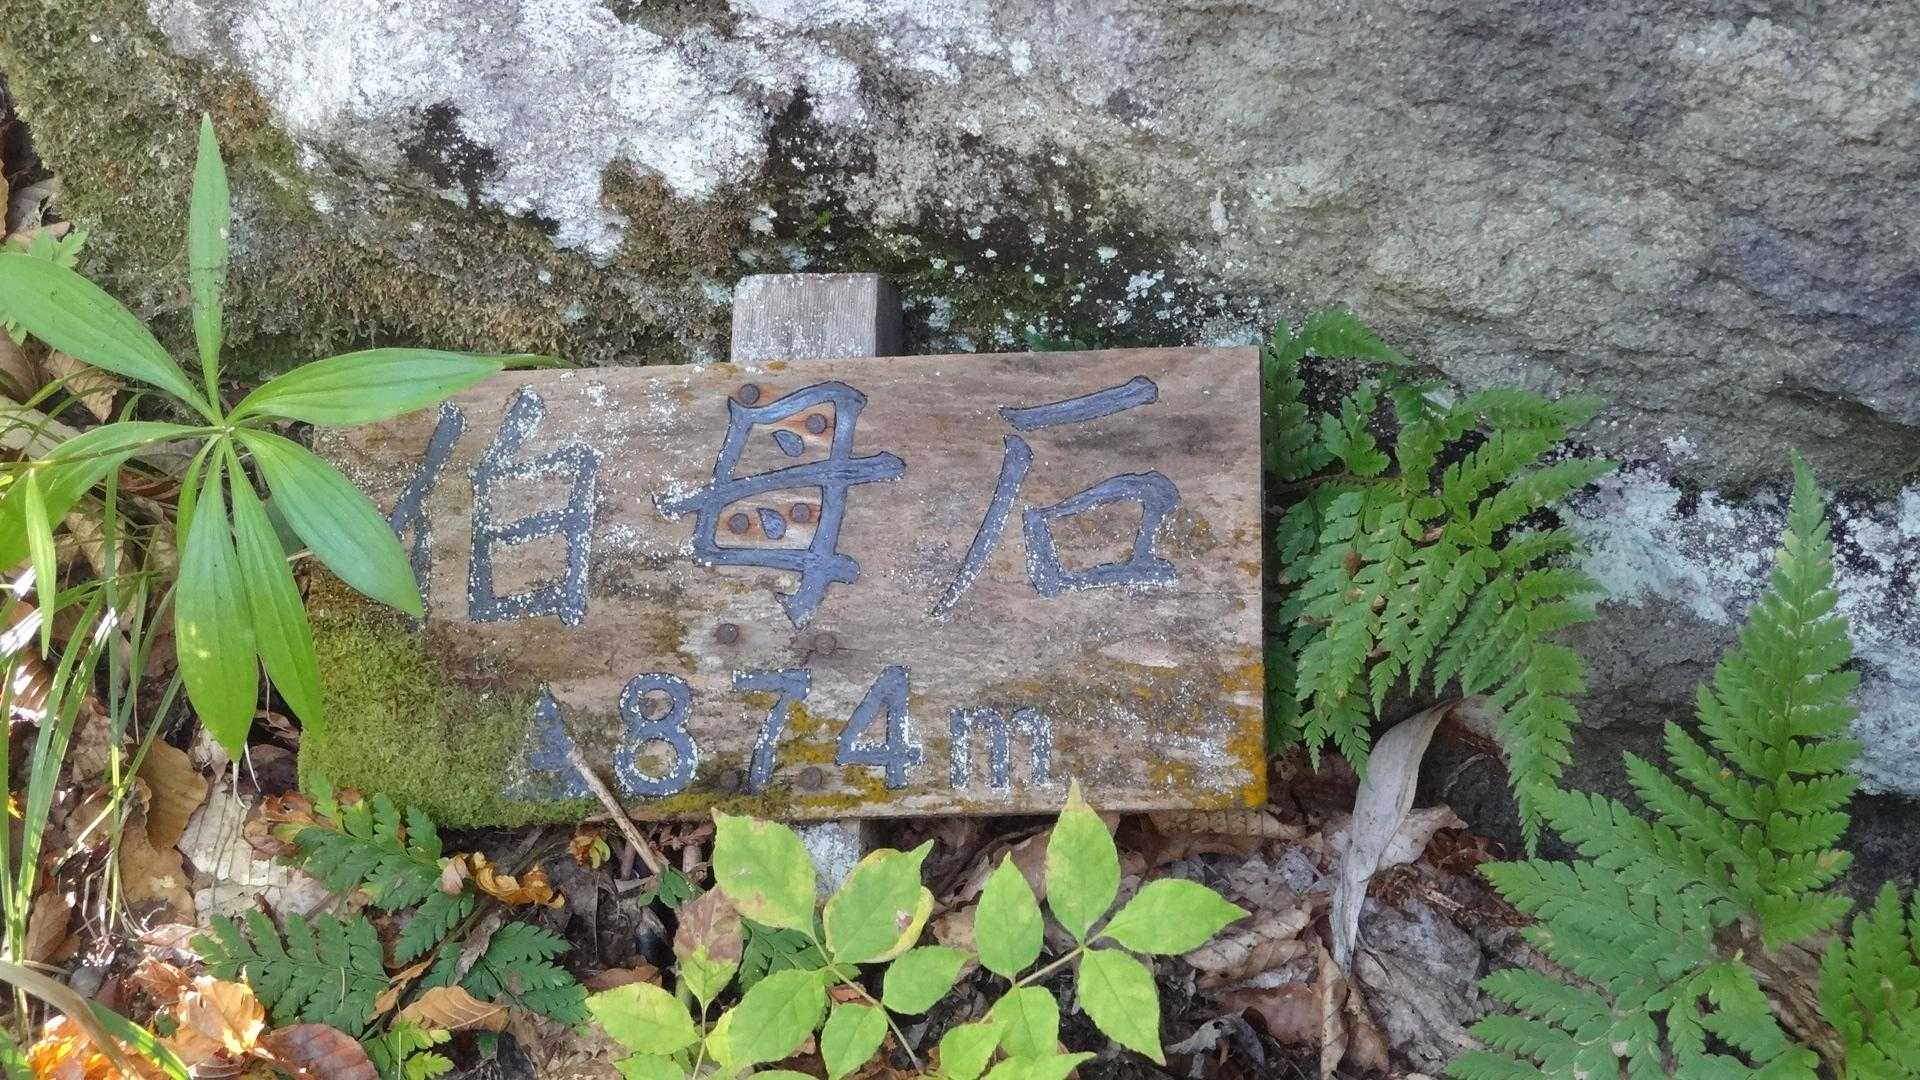 伯母石
▲874m